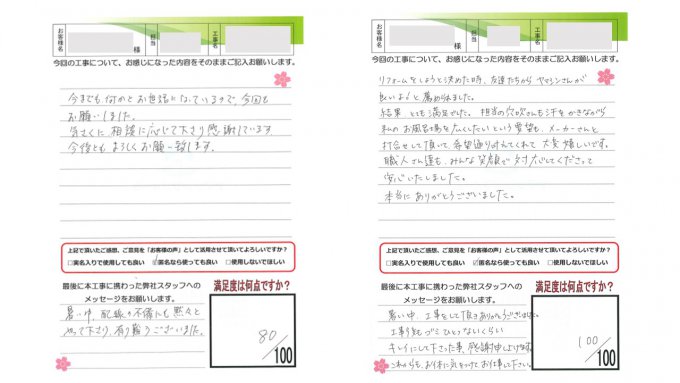 お客様名
様
担当
工事名
今回の工事について、お感じになった内容をそのままご記入お願いします。
今までも何かとお世話になっているので、今回も
お願いしました。
気さくに相談に応じて下さり感謝しています
今後ともよろしくお願い致します。
上記で頂いたご感想、ご意見を「お客様の声」として活用させて頂いてよろしいですか？
□実名入りで使用しても良い ☑匿名なら使っても良い □使用しないでほしい
最後に本工事に携わった弊社スタッフへの
メッセージをお願いします。
暑い中、配線の不備にも黙々と
やって下さり、有り難うございました。
満足度は何点ですか？
80/100
お客様名
様
担当
工事名
今回の工事について、お感じになった内容をそのままご記入お願いします。
リフォームをしようと決めた時、友達たちからヤマシンさんが
良いよと薦められました。
結果とても満足でした。担当の穴吹さんも汗をかきながら
私のお風呂場を広くしたいという要望も、メーカーさんと
打合せして頂いて、希望通り付けてくれて大変嬉しいです。
職人さん達も、みんな笑顔で対応してくださって
安心いたしました。
本当にありがとうございました。
上記で頂いたご感想、ご意見を「お客様の声」として活用させて頂いてよろしいですか？
□実名入りで使用しても良い ☑匿名なら使っても良い □使用しないでほしい
最後に本工事に携わった弊社スタッフへの
メッセージをお願いします。
暑い中、工事をして頂きありがとうございました。
工事後もゴミひとつないくらい
キレイにして下さった事、感謝申し上げます。
これからも、お体に気をつけてお仕事して下さい。
満足度は何点ですか？
100/100